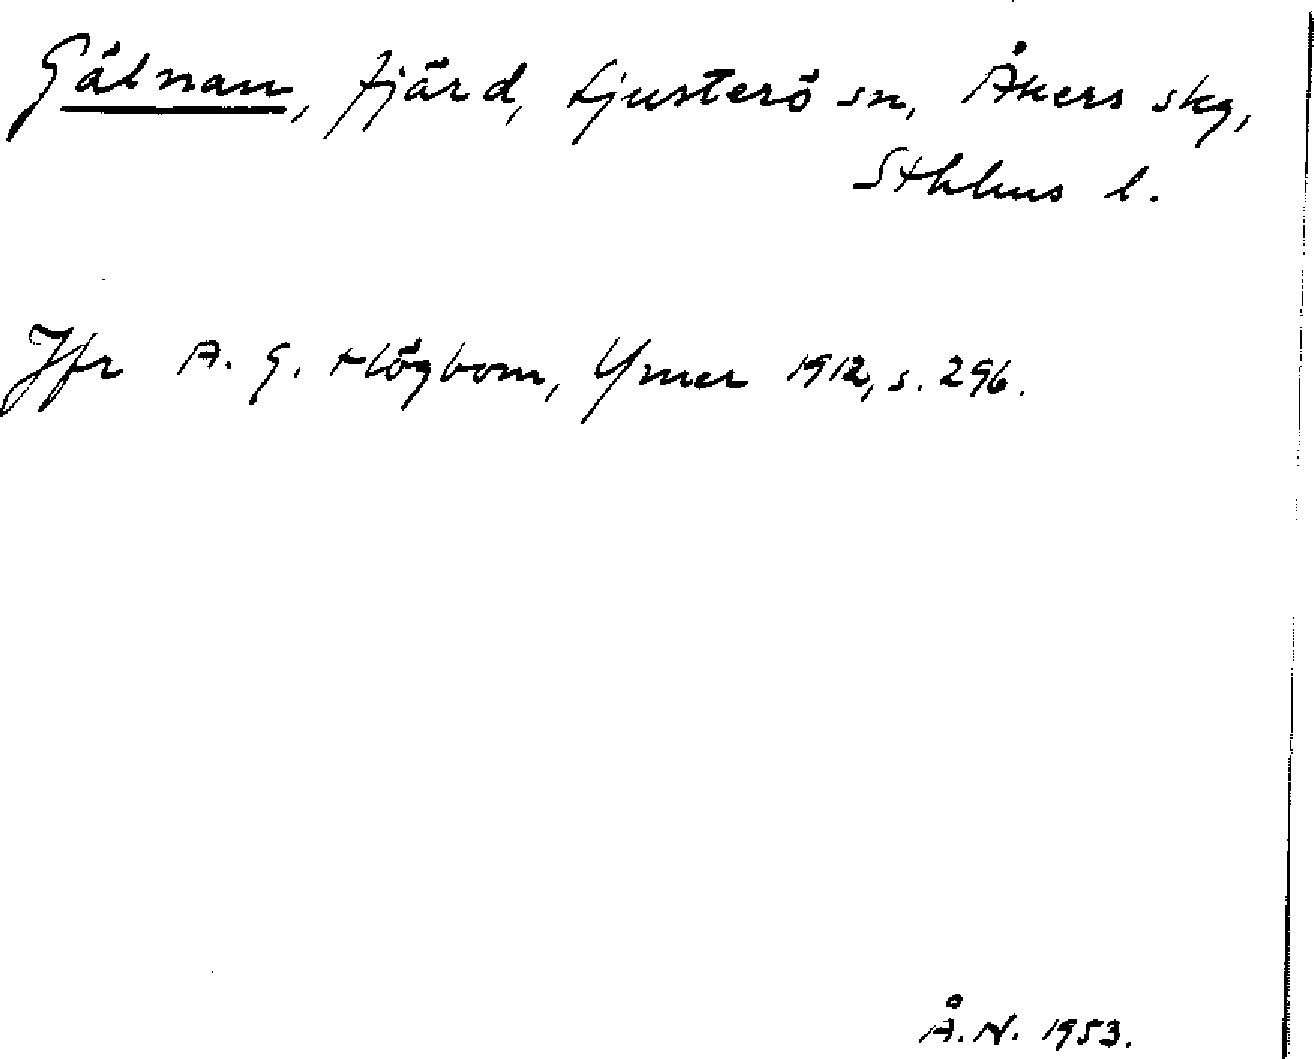 Gälnan, fjärd, Ljusterö sn, Åkers skg,
Sthlms l.
Jfr A. G. Högbom, Ymer 1912, s. 296.
Å. N. 1953.